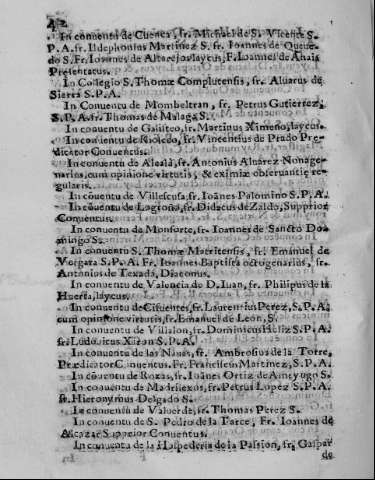 42
In conuentu de Cuenca, fr. Michael de S. Vicente S.
P. A. fr. Ildephonsus Martinez S. fr. Ioannes de Queue-
do S. Fr. Ioannes de Altarejos laycus, F. Ioannes de
Presentatus.
In Collegio S. Thomæ Complutensis, fr. Aluarus de
Sierra S. P. A.
In Conuentu de Mombeltran, fr. Petrus Gutierrez,
S. P. A. fr. Thomas de Malaga S.
In conuentu de Galisteo, fr. Martinus Ximeno, laycus.
In conuentu de fr. Vincentius de Prado Pre-
dicator Conuentus.
In conuentu de Alcalà, fr. Antonius Aluarez Nonage-
narius, cum opinione virtutis, & eximiæ obseruantiæ re-
gularis.
In cōuentu de Villescusa, fr. Ioānes Palomino S. P. A.
In cōuentu de Logroño, fr. Didacus de Zaldo, Supprior
Conuentus.
In conuentu de Monforte, fr. Ioannes de Sancto Do-
mingo S.
In conuentu S. Thomæ Matritensis, fr. Emanuel de
Vergara S. P. A. Fr. Ioannes Baptista octogenarius, fr.
Antonius de Texada, Diaconus.
In conuentu de Valencia de D. Iuan, fr. Philipus de la
Huerta, laycus.
In conuentu de Cifuentes, fr. Laurentius Perez, S. P. A.
cum opinione virtutis, fr. Emanuel de Leon, S.
In conuentu de Villalon, fr. Dominicus S. P. A.
fr. Ludouicus S. P. A.
In conuentu de las Nauas, fr. Ambrosius de la Torre,
Prædicator Conuentus. Fr. Franciscus Martinez, S. P. A.
In cōuentu de Roxas, fr. Ioānes Ortiz de Ameyugo S.
In conuentu de Madrilexos, fr. Petrus Lopez S. P. A.
fr. Hieronymus Delgado S.
In conuentu de Valuerde, fr. Thomas Perez S.
In conuentu de S. Pedro de la Tarce, Fr. Ioannes de
Alcazar Supprior Conuentus.
In conuentu de la Hospederia de la Passion, fr. Gaspar
de